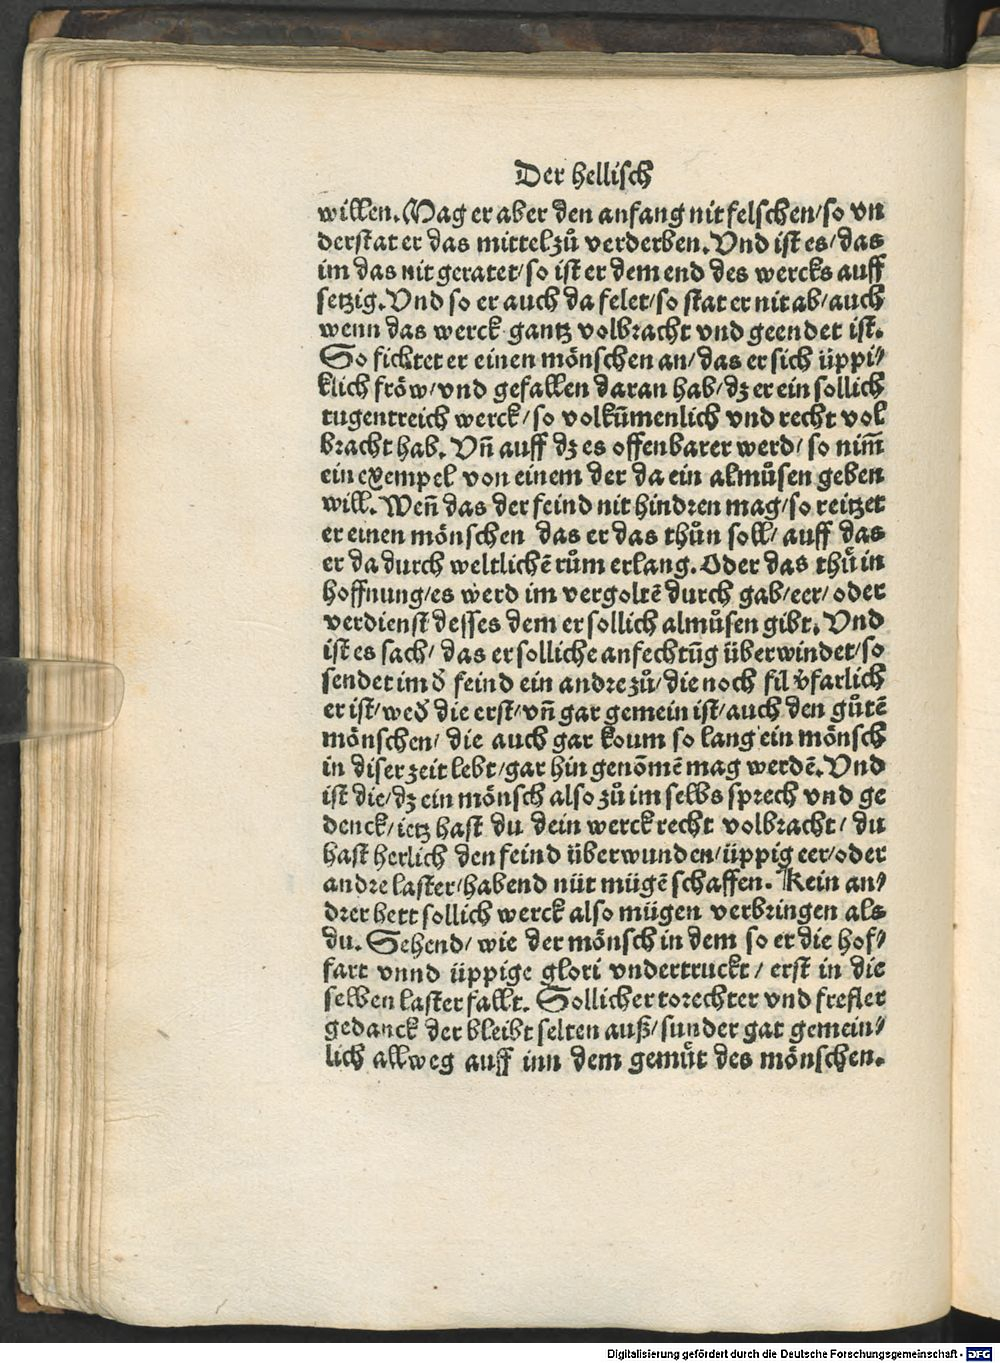 Der hellisch
willen. Mag er aber den anfang nit felschen/ so vn
derstat er das mittel zů verderben. Vnd ist es/ das
im das nit geratet/ so ist er dem end des wercks auff
setzig. Vnd so er auch da felet/ so stat er nit ab/ auch
wenn das werck gantz volbracht vnd geendet ist.
So fichtet er einen mönschen an/ das er sich üppi/
klich fröw/ vnd gefallen daran hab/ dz er ein sollich
tugentreich werck/ so volkūmenlich vnd recht vol
bracht hab. Vñ auff dz es offenbarer werd/ so nim̄
ein exempel von einem der da ein almůsen geben
will. Weñ das der feind nit hindren mag/ so reitzet
er einen mönschen das er das thůn soll/ auff das
er da durch weltlichē rům erlang. Oder das thů in
hoffnung/ es werd im vergoltē durch gab/ eer/ oder
verdienst desses dem er sollich almůsen gibt. Vnd
ist es sach/ das er solliche anfechtūg überwindet/ so
sendet im d̄ feind ein andre zů/ die noch fil v̄farlich
er ist/ wed̄ die erst/ vñ gar gemein ist/ auch den gůtē
mönschen/ die auch gar koum so lang ein mönsch
in diser zeit lebt/ gar hin genōmē mag werdē. Vnd
ist die/ dz ein mönsch also zů im selbs sprech vnd ge
denck/ ietz hast du dein werck recht volbracht/ du
hast herlich den feind überwunden/ üppig eer/ oder
andre laster/ habend nüt mügē schaffen. Kein an/
drer hett sollich werck also mügen verbringen als
du. Sehend/ wie der mönsch in dem so er die hof/
fart vnnd üppige glori vndertruckt/ erst in die
selben laster fallt. Sollicher torechter vnd frefler
gedanck der bleibt selten auß/ sunder gat gemein/
lich allweg auff inn dem gemüt des mönschen.
Digitalisierung gefördert durch die Deutsche Forschungsgemeinschaft - DFG